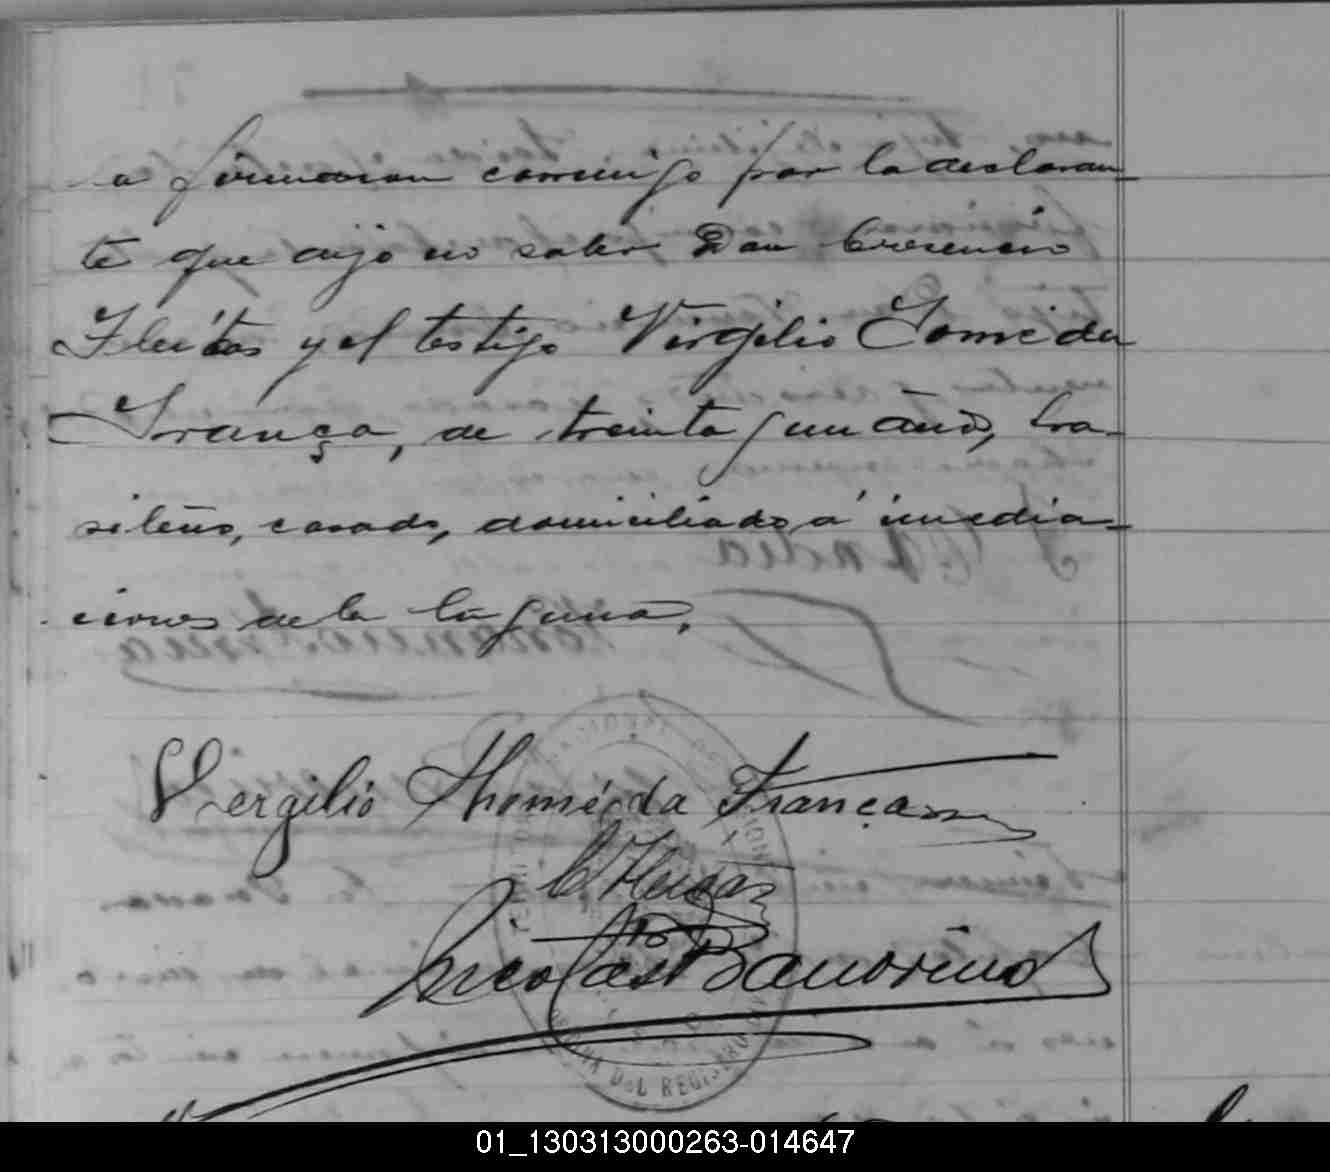 la firmaron conmigo por la declaran
te que dijo no saber Don Crecencio
Fleitas y el testigo Virgilio Tomé da
França, de treinta y un años, bra-
sileño, casado, domiciliado á inmedia-
ciones de la laguna.
Vergilio Thomé da França
C Fleitas
Nicolas Bancorino
DEL REGISTRO
01_130313000263-014647